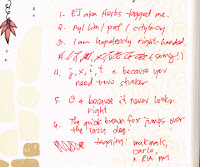 1- EJ aka Herbs tagged me.
2- nyl him / prof / cityboy
3. I am hopelessly right-handed.
(sorry!)
4. y, x, i, t & because you
need two strokes
5 & because it never looks
right
6. The quick brown fox jumps over
the lazy dog.
tagging: makmak,
carlo,